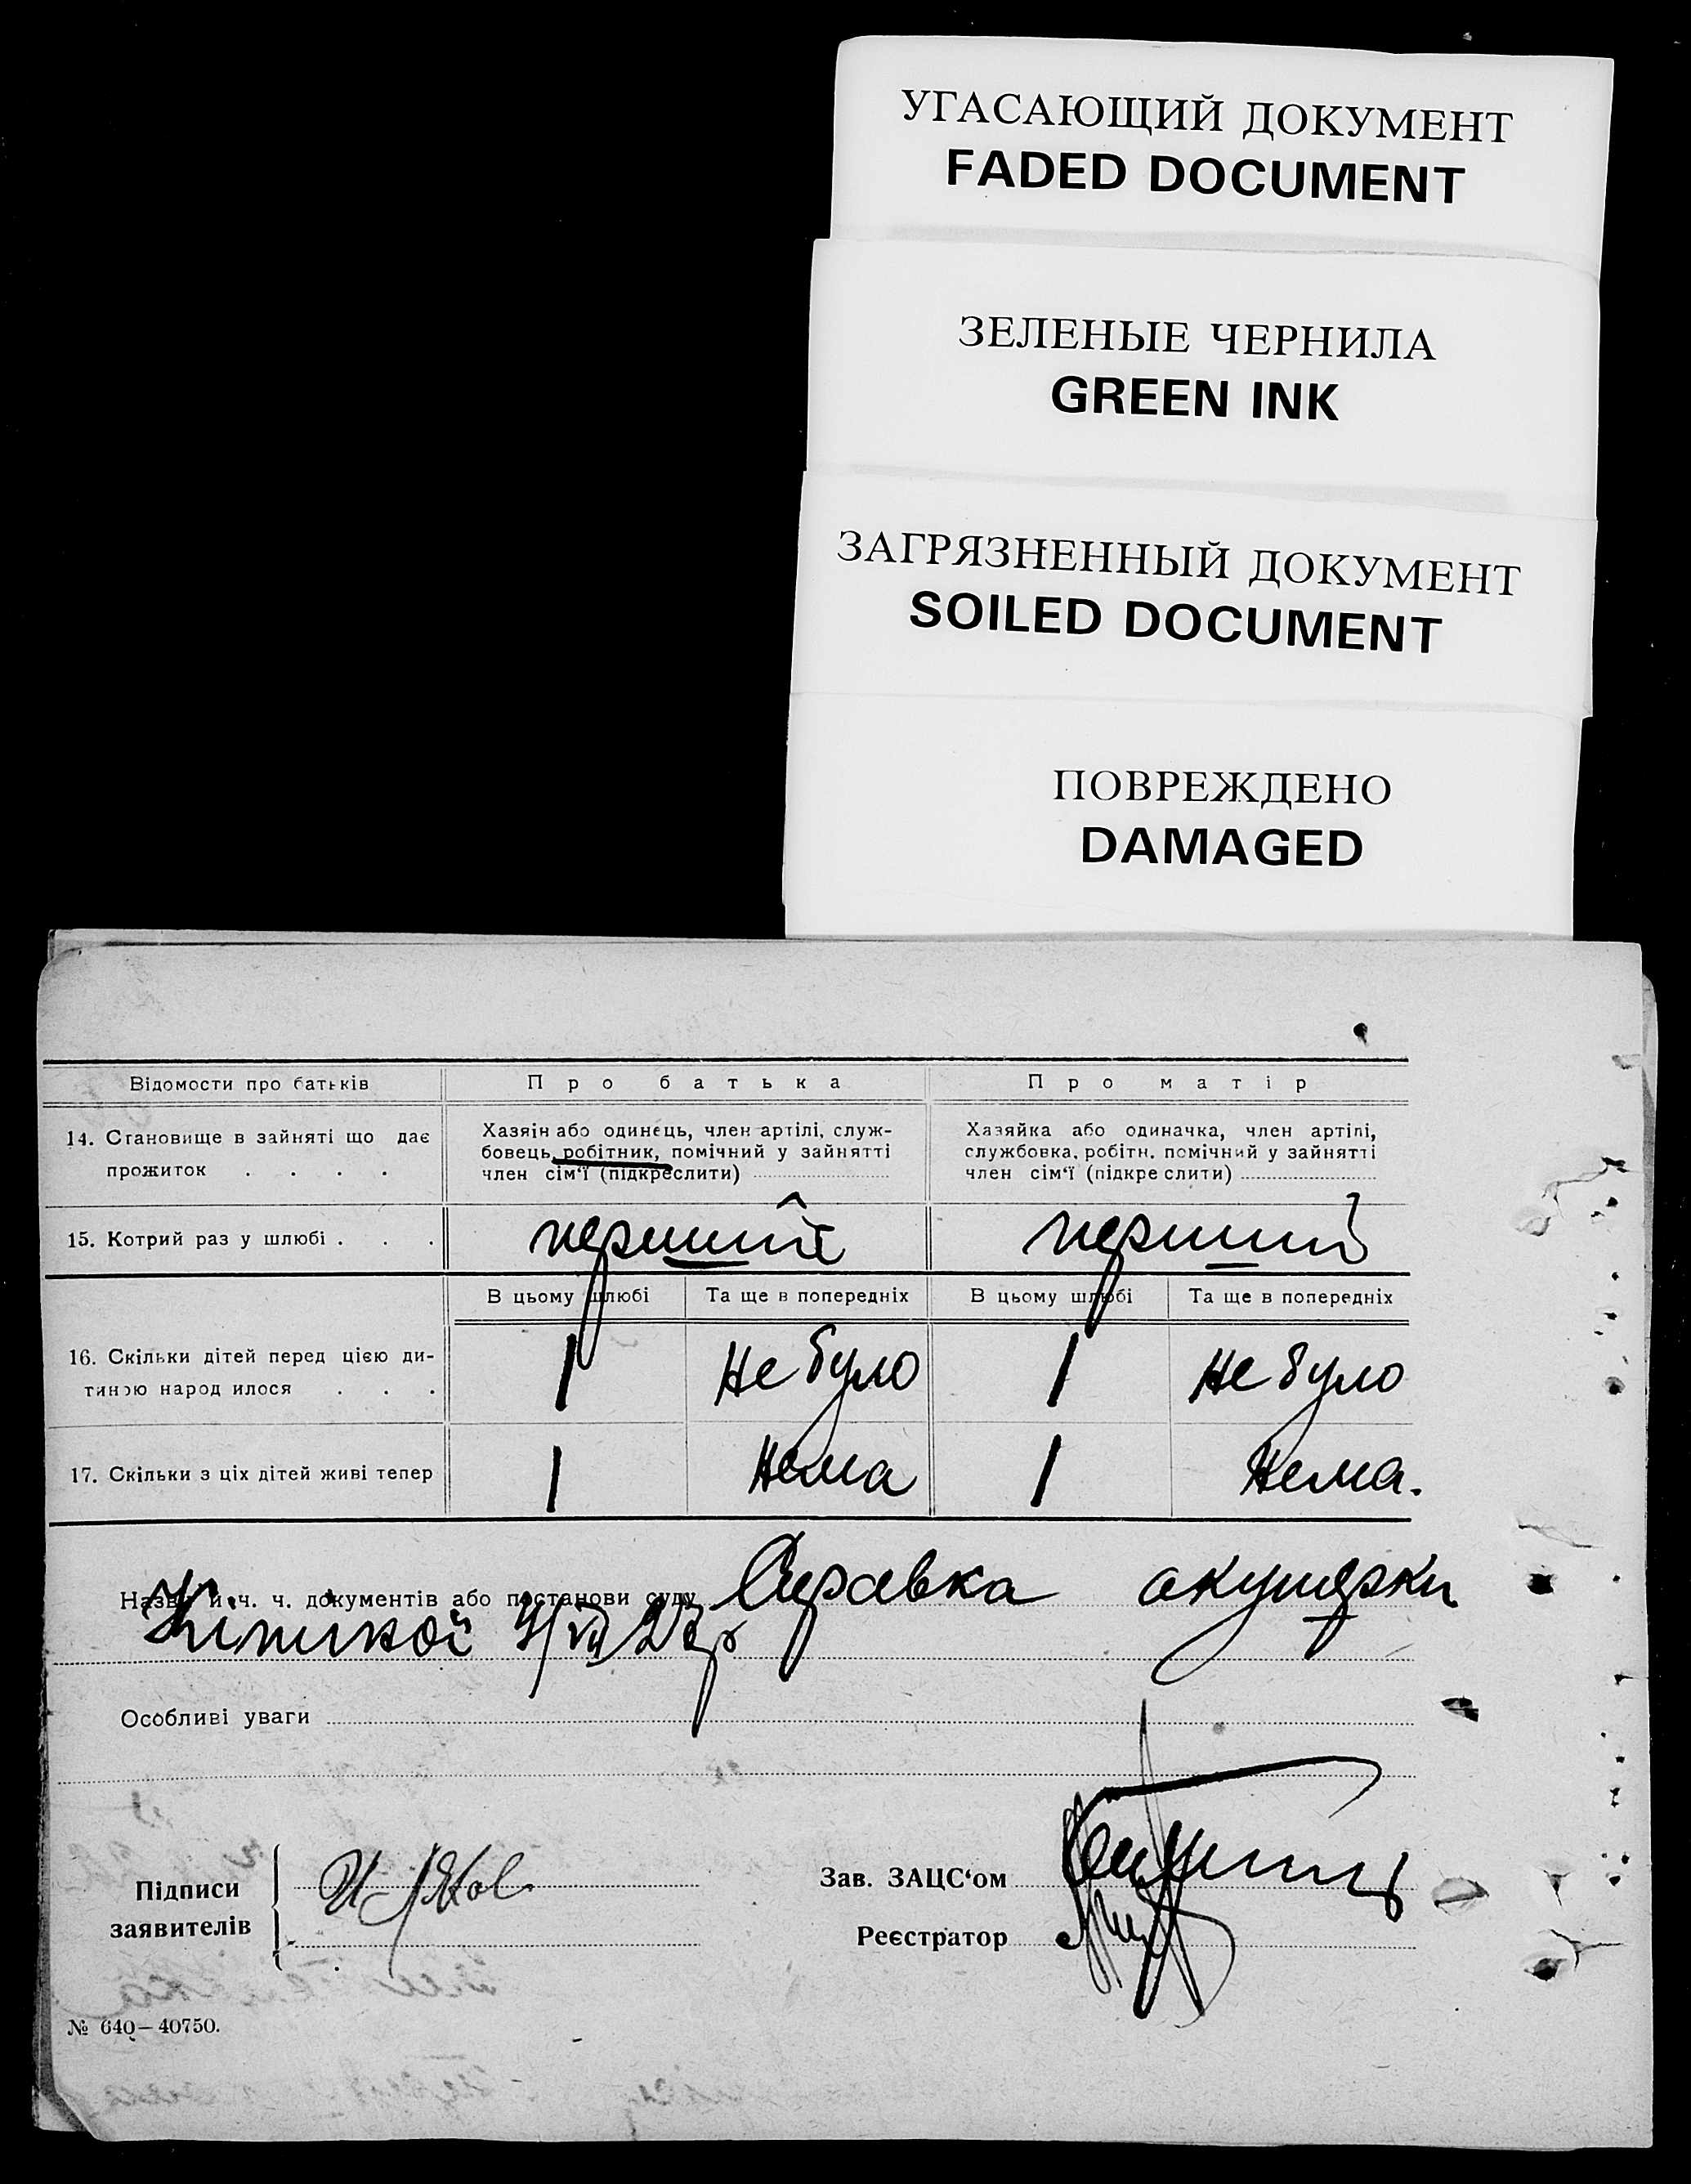 УГАСАЮЩИЙ ДОКУМЕНТ
FADED DOCUMENT
ЗЕЛЕНЫЕ ЧЕРНИЛА
GREEN INK
ЗАГРЯЗНЕННЫЙ ДОКУМЕНТ
SOILED DOCUMENT
ПОВРЕЖДЕНО
DAMAGED
Відомости про батьків Про батька Про матір
14. Становище в зайняті що дає прожиток . . . .
Хазяїн або одинець, член артілі, служ-
бовець, робітник, помічний у зайнятті
член сім'ї (підкреслити)
Хазяйка або одиначка, член артілі,
службовка, робітн. помічний у зайнятті
член сім'ї (підкреслити)
15. Котрий раз у шлюбі . . . перший перший
В цьому шлюбі Та ще в попередніх В цьому шлюбі Та ще в попередніх
16. Скільки дітей перед цією ди-
тиною народилося . . . 1 Не було 1 Не було
17. Скільки з ціх дітей живі тепер 1 Нема 1 Нема.
Назви й ч. ч. документів або постанови суду Справка акушерки
Особливі уваги
Підписи
заявителів
Зав. ЗАЦС'ом
Реєстратор
№ 640—40750.